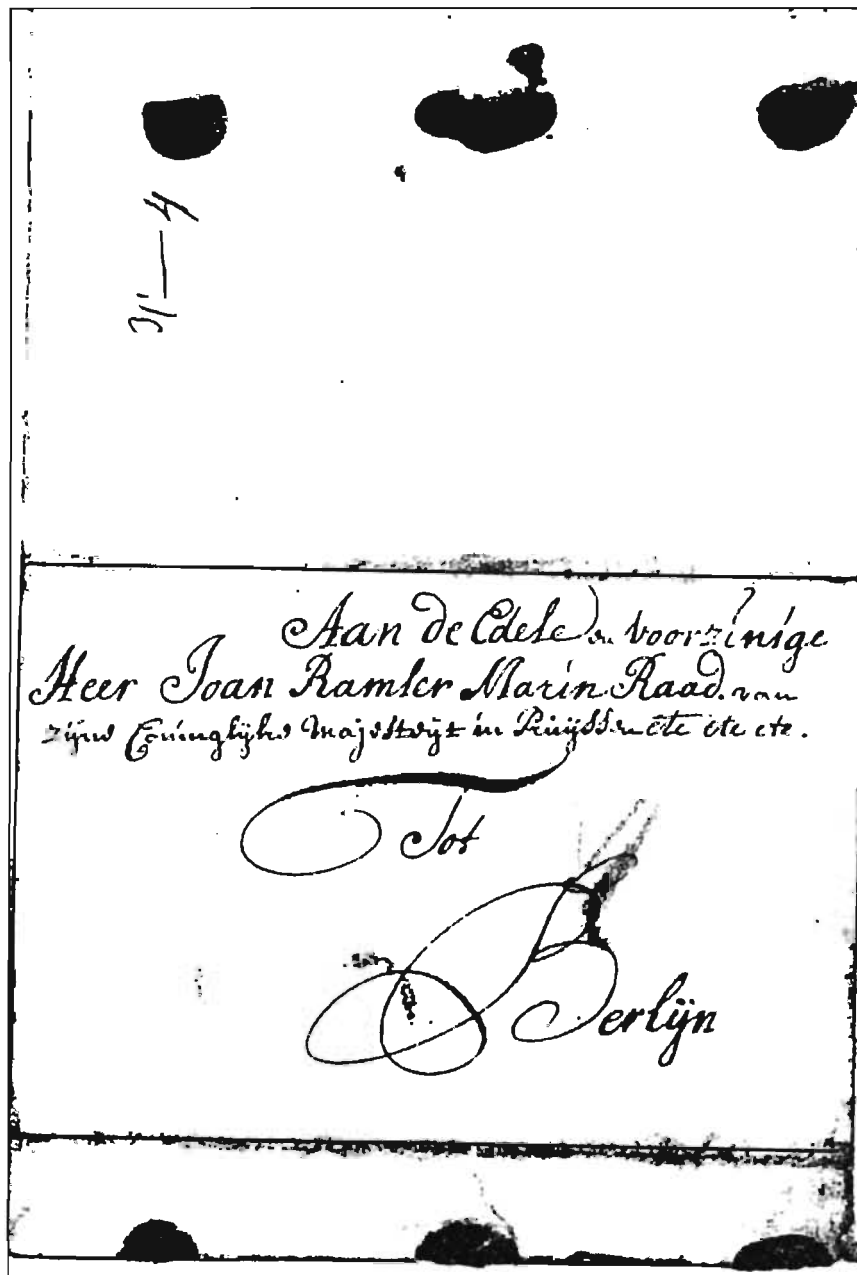 Aan de Edele en voorzinige
Heer Joan Ramler Marin Raad van
zijne Coninglijke Majesteijt in Pruijssen etc etc etc.
Tot
Berlijn